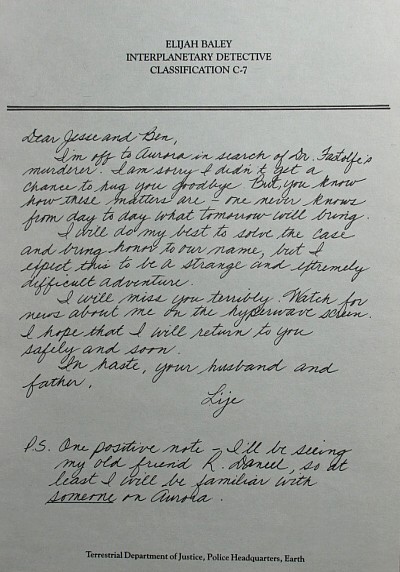 ELIJAH BALEY
INTERPLANETARY DETECTIVE
CLASSIFICATION C-7
Dear Jesse and Ben,
I'm off to Aurora in search of Dr. Fastolfe's
murderer. I am sorry I didn't get a
chance to hug you goodbye. But, you know
how these matters are – one never knows
from day to day what tomorrow will bring.
I will do my best to solve the case
and bring honor to our name, but I
expect this to be a strange and extremely
difficult adventure.
I will miss you terribly. Watch for
news about me on the hyperwave screen.
I hope that I will return to you
safely and soon.
In haste, your husband and
father,
Lije
P.S. One positive note – I'll be seeing
my old friend R. Daneel, so at
least I will be familiar with
someone on Aurora.
Terrestrial Department of Justice, Police Headquarters, Earth